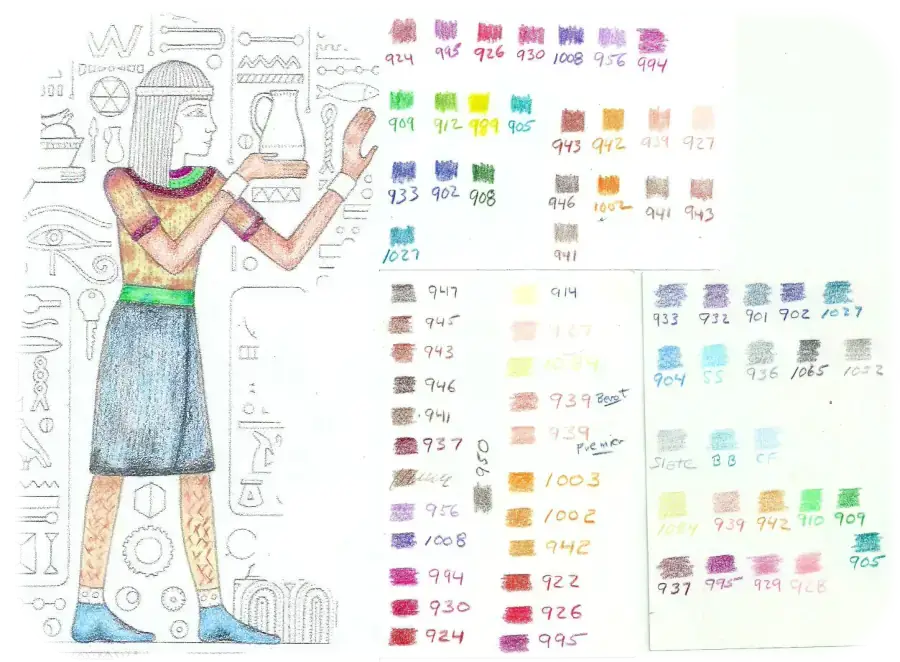 924 995 926 930 1008 956 994
909 912 989 905
943 942 939 927
933 902 908
946 1002 941 943
1027
941
947
945
943
946
941
937
950
956
1008
994
930
924
914
927
1084
939 Berot
939 Premier
1003
1002
942
922
926
995
933 932 901 902 1027
904 SS 936 1065 1052
Slate BB CF
1084 939 942 910 909
905
937 995 929 928